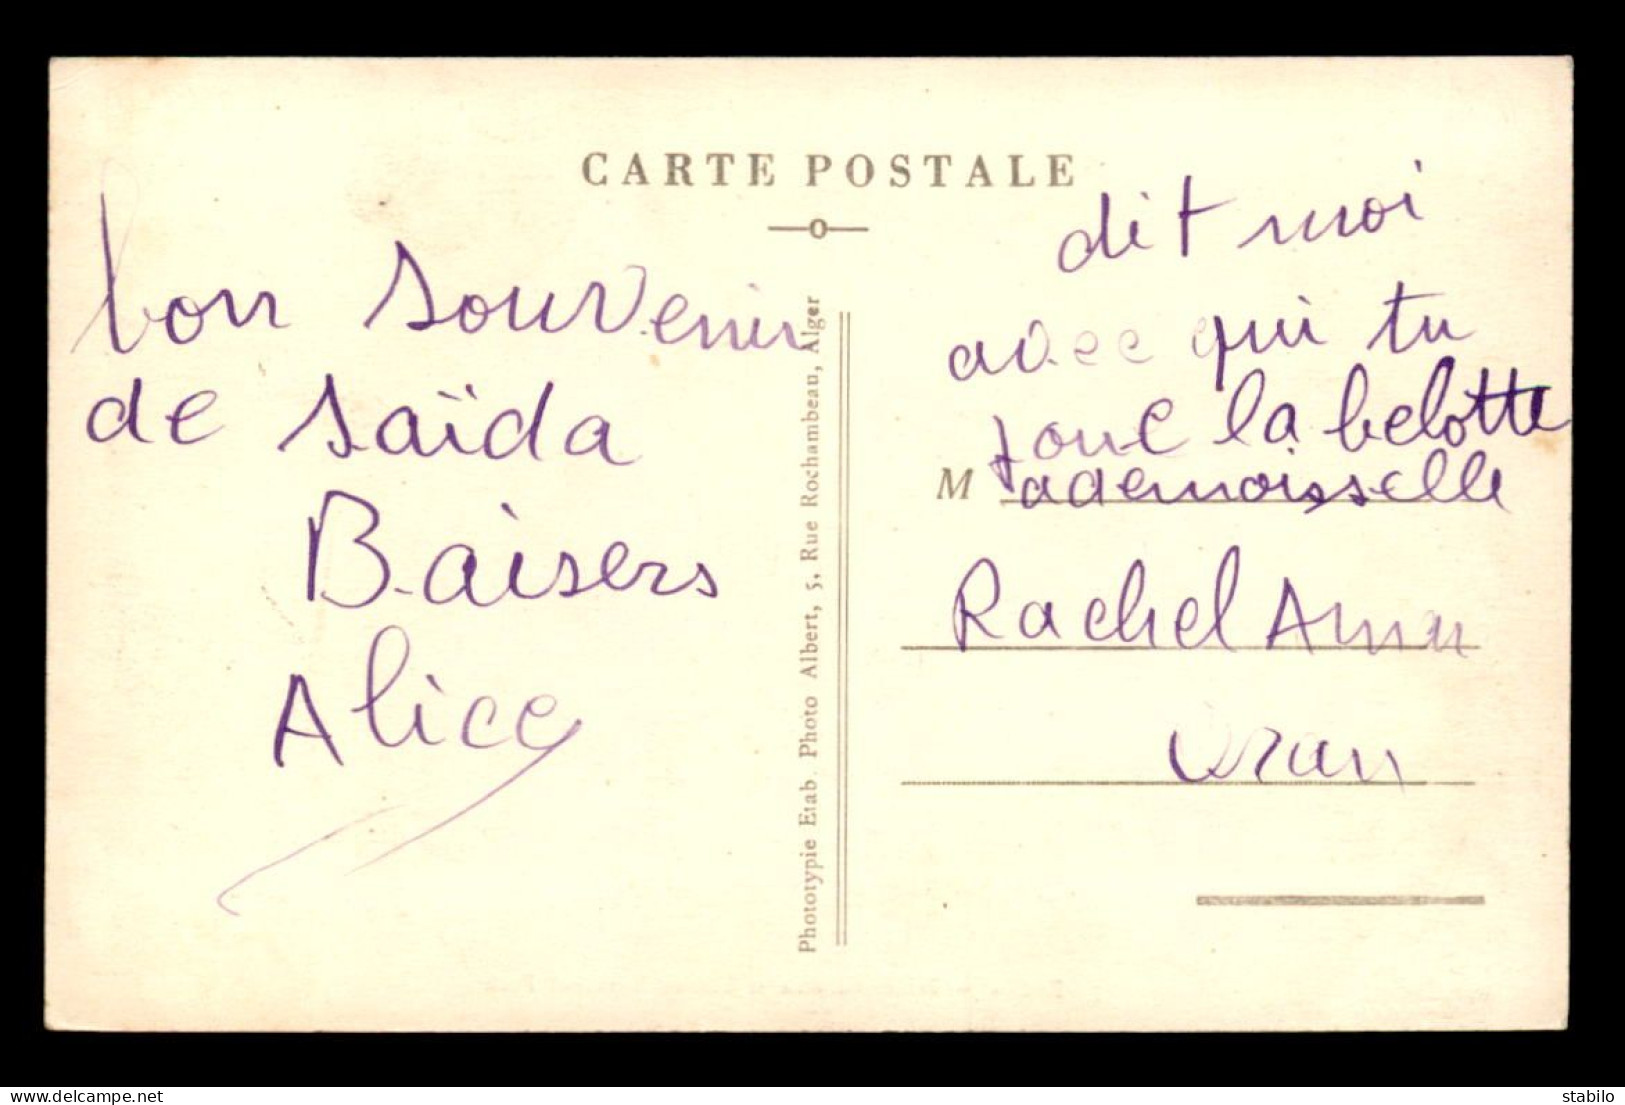 CARTE POSTALE
bon souvenir
de saïda
Baisers
Alice
Phototypie Etab. Photo Albert, 5, Rue Rochambeau, Alger
dit moi
avec qui tu
joue la belotte
Mademoisselle
Rachel
oran
www.delcampe.net
stabilo